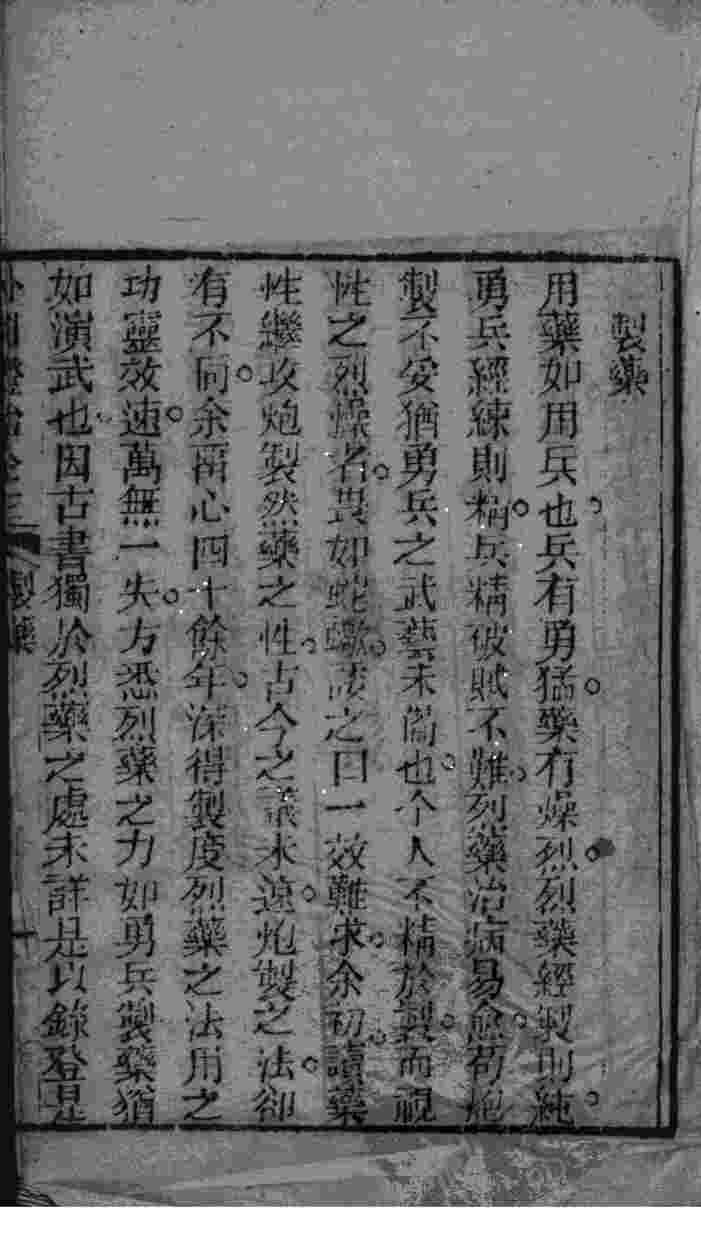 製藥
用藥如用兵也兵有勇猛藥有燥烈烈藥經製則純
勇兵經練則精兵精破賊不難烈藥治病易愈苟炮
製不妥猶勇兵之武藝未備也今人不精於製而視
性之烈燥者畏如蛇蠍談之曰一效難求余初讀藥
性繼攻炮製然藥之性古今之議未遠炮製之法卻
有不同余畱心四十餘年深得製度烈藥之法用之
功靈效速萬無一失方悉烈藥之力如勇兵製藥猶
如演武也因古書獨於烈藥之處未詳是以錄登是
外科證治全
製藥